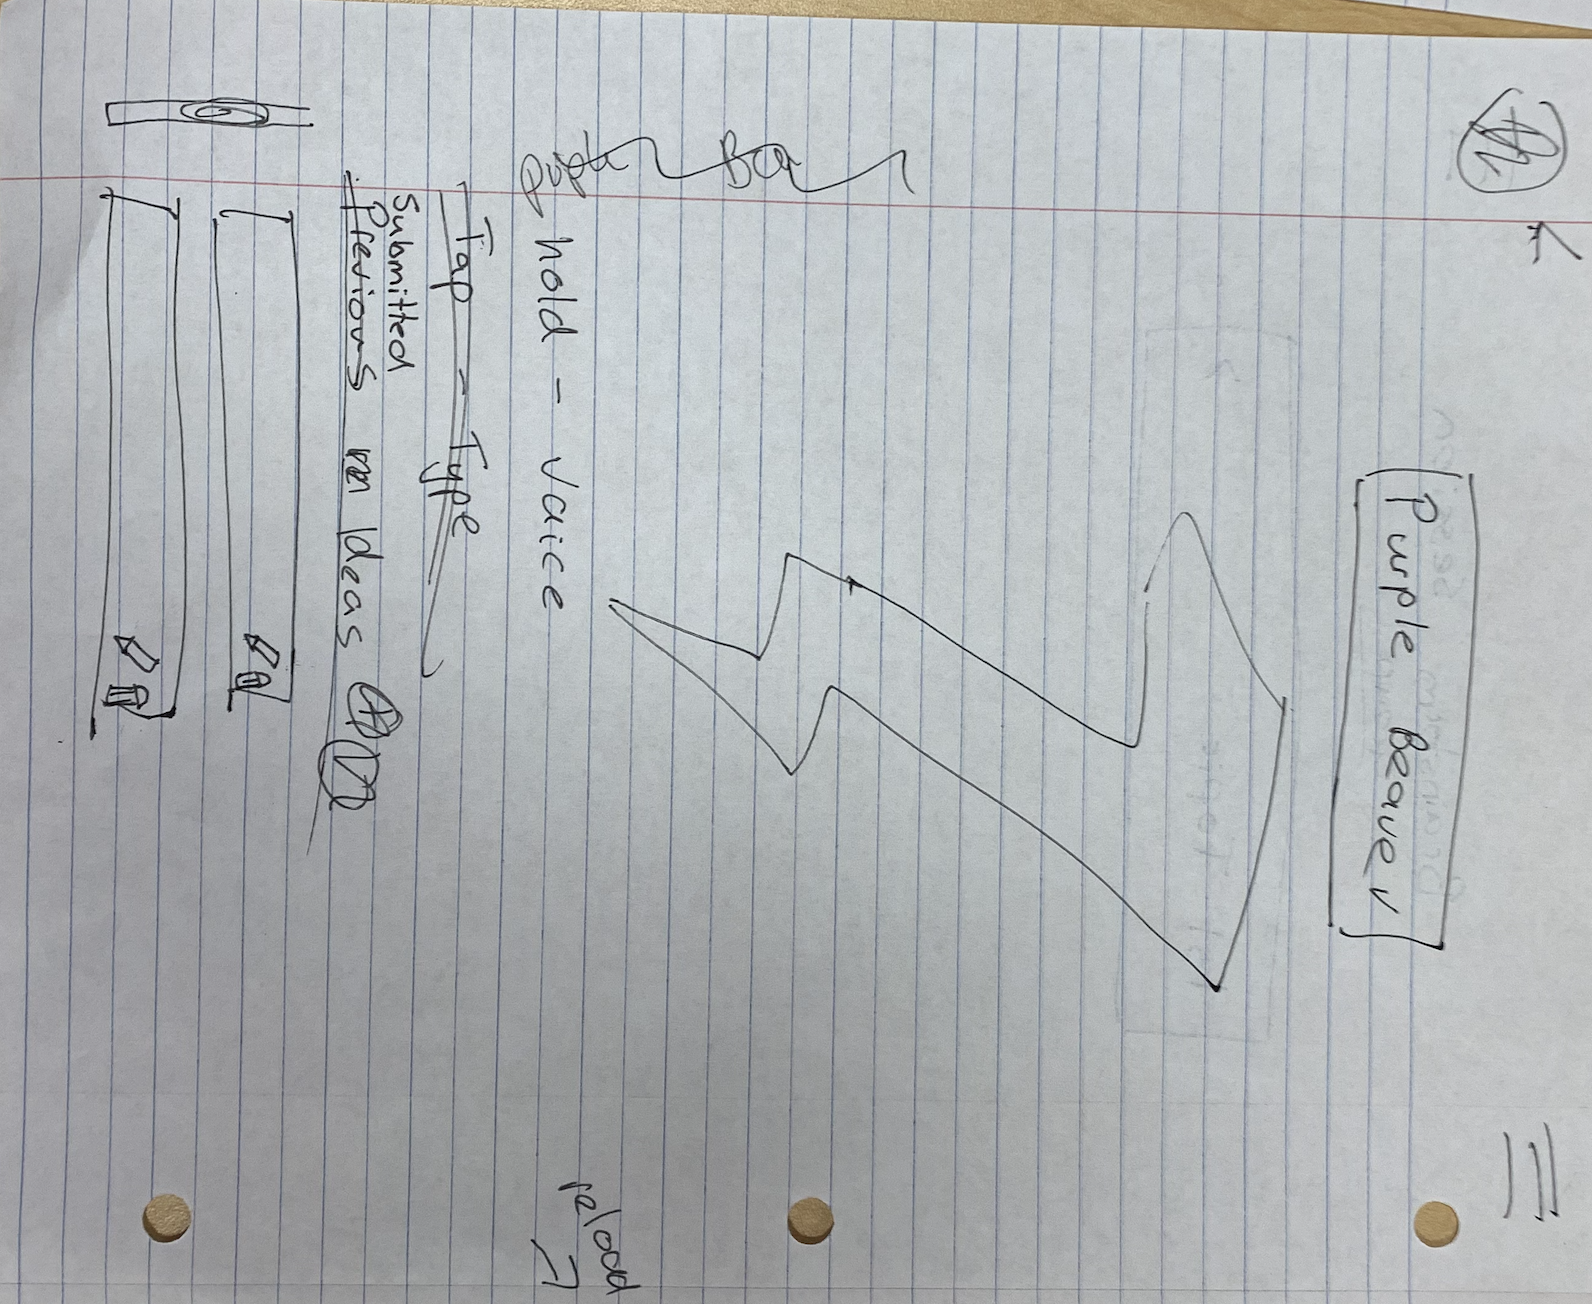 Purple Beaver
reload
hold - voice
Tap - Type
Submitted
Previous m Ideas